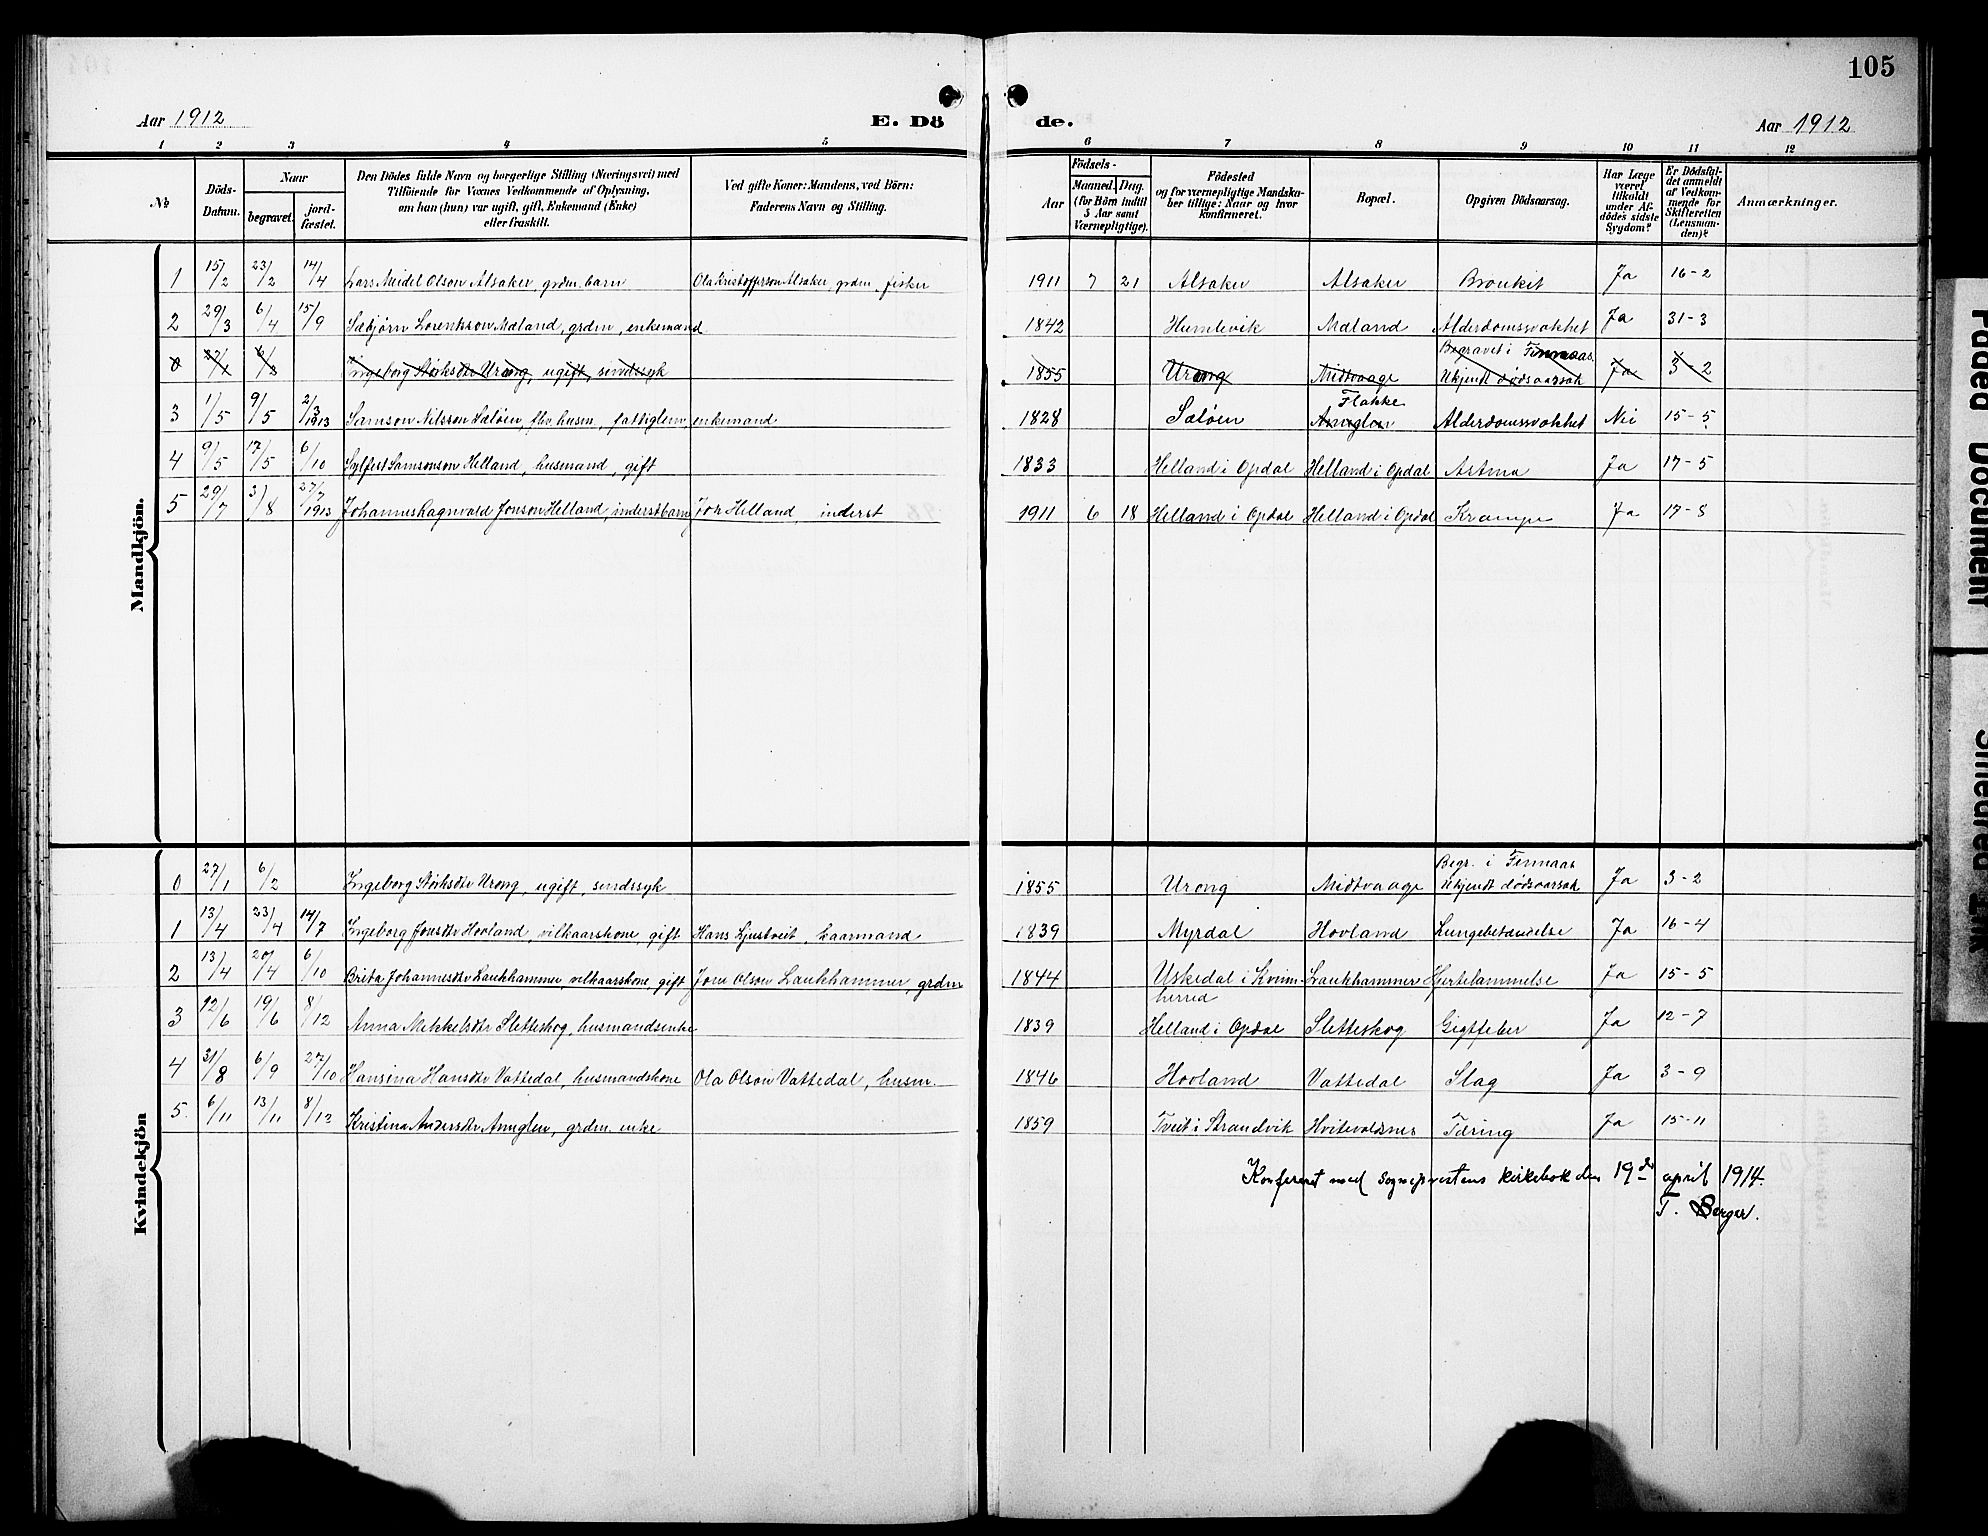 105
Aar 1912
E. Dö
de.
Aar 1912
1 2 3 4 5
6 7 8 9 10 11 12
№
Döds-Datum.
Naar
begravet.
jord-fæstet.
Den Dödes fulde Navn og borgerlige Stilling (Næringsvei) med
Tilföiende for Voxnes Vedkommende af Oplysning,
om han (hun) var ugift, gift, Enkemand (Enke)
eller fraskilt.
Ved gifte Koner: Mandens, ved Börn:
Faderens Navn og Stilling.
Födsels-
Aar
Maaned. Dag.
(for Börn indtil
5 Aar samt
Værnepligtige).
Födested
og for værnepligtige Mandska-
ber tillige: Naar og hvor
konfirmeret.
Bopæl.
Opgiven Dödsaarsag.
Har Læge
været
tilkaldt
under Af-
dödes sidste
Sygdom?
Er Dödsfal-
det anmeldt
af Vedkom-
mende for
Skifteretten
(Lensman-
den)?
Anmærkninger.
Mandkjön.
1 15/2 23/2 14/4 Lars Meidel Olson Alsaker, grdm. barn Ola Kristofferson Alsaker, grdm. fisker 1911 7 21 Alsaker Alsaker Bronkit Ja 16-2
2 29/3 6/4 15/9 Sæbjørn Lorentsson Maland, grdm., enkemand 1842 Humlevik Maland Alderdomssvakhet Ja 31-3
0 27/1 6/2 Ingeborg Størksdtr Urang, ugift, sindssyk 1855 Urang Midtvaage Begravet i Finnaas Ukjendt dødsaarsak Ja 3-2
3 1/5 9/5 2/3 1913 Samson Nilsson Sæløen, fhv. husm., fattiglem, enkemand 1828 Sæløen Flakke Anuglen Alderdomssvakhet Nei 15-5
4 9/5 17/5 6/10 Sylfest Samsonson Helland, husmand, gift 1833 Helland i Opdal Helland i Opdal Astma Ja 17-5
5 29/7 3/8 27/7 1913 Johannes Ragnvald Jonson Helland, inderstbarn Jon Helland, inderst 1911 6 18 Helland i Opdal Helland i Opdal Krampe Ja 17-8
Kvindekjön
0 27/1 6/2 Ingeborg Størksdtr Urang, ugift, sindssyk 1855 Urang Midtvaage Begr. i Finnaas Ukjendt dødsaarsak Ja 3-2
1 13/4 23/4 14/7 Ingeborg Jonsdtr Hovland, vilkaarskone, gift Hans Ljustveit, kaarmand 1839 Myrdal Hovland Lungebetændelse Ja 16-4
2 13/4 20/4 6/10 Brita Johannesdtr Laukhammer vilkaarskone, gift Jon Olson Laukhammer, grdm 1844 Uskedal i Kvinnherred Laukhammer Hjertelammelse Ja 15-5
3 12/6 19/6 8/12 Anna Mikkelsdtr Sletteskog, husmandsenke 1839 Helland i Opdal Sletteskog Gigtfeber Ja 12-7
4 31/8 6/9 27/10 Hansina Hansdtr Vattedal, husmandskone Ola Olson Vattedal, husm. 1846 Hovland Vattedal Slag Ja 3-9
5 6/11 13/11 8/12 Kristina Andersdtr Anuglen, grdm. enke 1859 Tveit i Strandvik Hvitevoldsnes Tæring Ja 15-11
Konferert med sogneprestens kirkebok den 19de april 1914.
T. Berger.
Faded Document